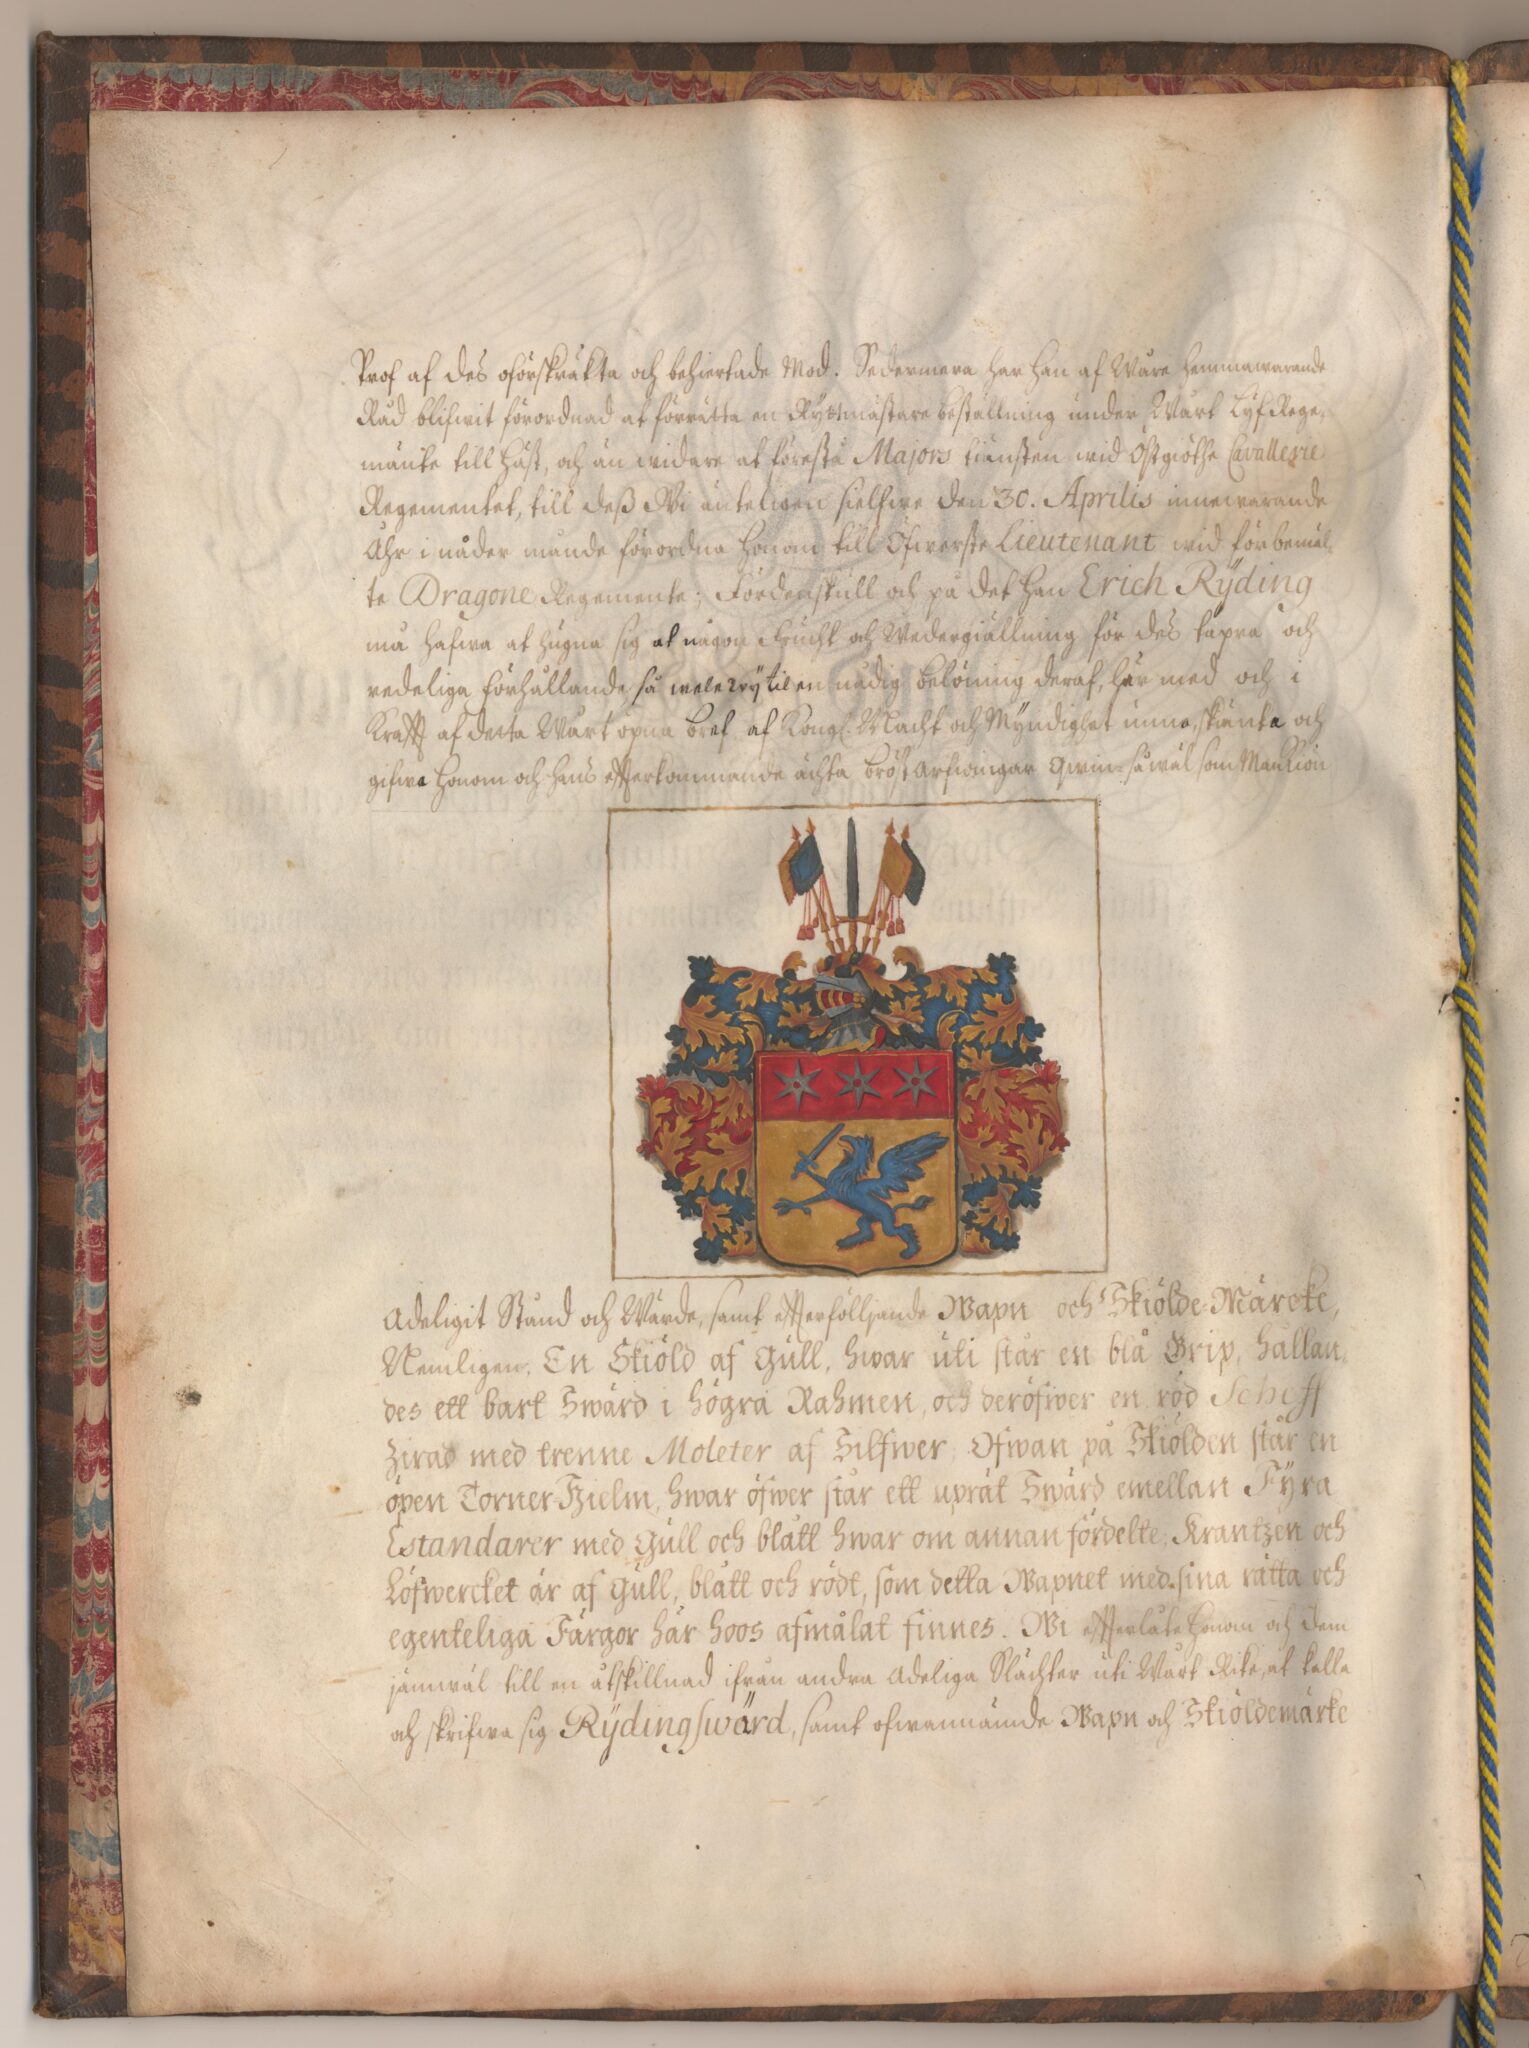 Prof af des oförskräkta och behiertade Mod. Sedermera har Han af Wåre hemmawarande
Råd blifwit förordnad at förrätta en Ryttmästare beställning under Wårt LyfRege,
mänte till Häst, och än widare at förestå Majors tiänsten wid Östgiöthe Cavallerie
Regementet, till deß Wi änteligen sielfwe den 30. Aprilis innewarande
Åhr i nåder månde förordna Honom till Öfwerste Lieutenant wid förbemäl,
te Dragone Regemente; Fördenskull och på det Han Erich Rÿding
må hafwa at hugna sig at någon Frucht och Wedergiällning för des tapra och
redeliga förhållande så wele wÿ til en nådig belöning deraf, här med och i
Krafft af detta Wårt öpna bref af Kongl. Macht och Myndighet unna, skänka och
gifwa Honom och Hans efterkommande ächta bröst Arfwingar Qwin- såwäl som Mankiön
Adeligit Stånd och Wärde, samt efterfölljande Wapn och Skiölde-Märcke,
Nemligen; En Skiöld af Gull, hwar uti står en blå Grip, hållan,
des ett bart Swärd i högra Rahmen, och deröfwer en röd Scheff
Zirad med trenne Moleter af Silfwer; Ofwan på Skiölden står en
öpen Torner-Hielm, hwar öfwer står ett uprät Swärd emellan Fÿra
Estandarer med Gull och blått hwar om annan fördelte; Krantzen och
Löfwercket är af Gull, blått och rödt, som detta Wapnet med sina rätta och
egenteliga Färgor här hoos afmålat finnes. Wi efterlåte Honom och dem
jämwäl till en åtskillnad ifrån andra Adeliga Slächter uti Wårt Rike, at kalla
och skrifwa sig Rÿdingswärd, samt ofwannämde Wapn och Skiöldemärke